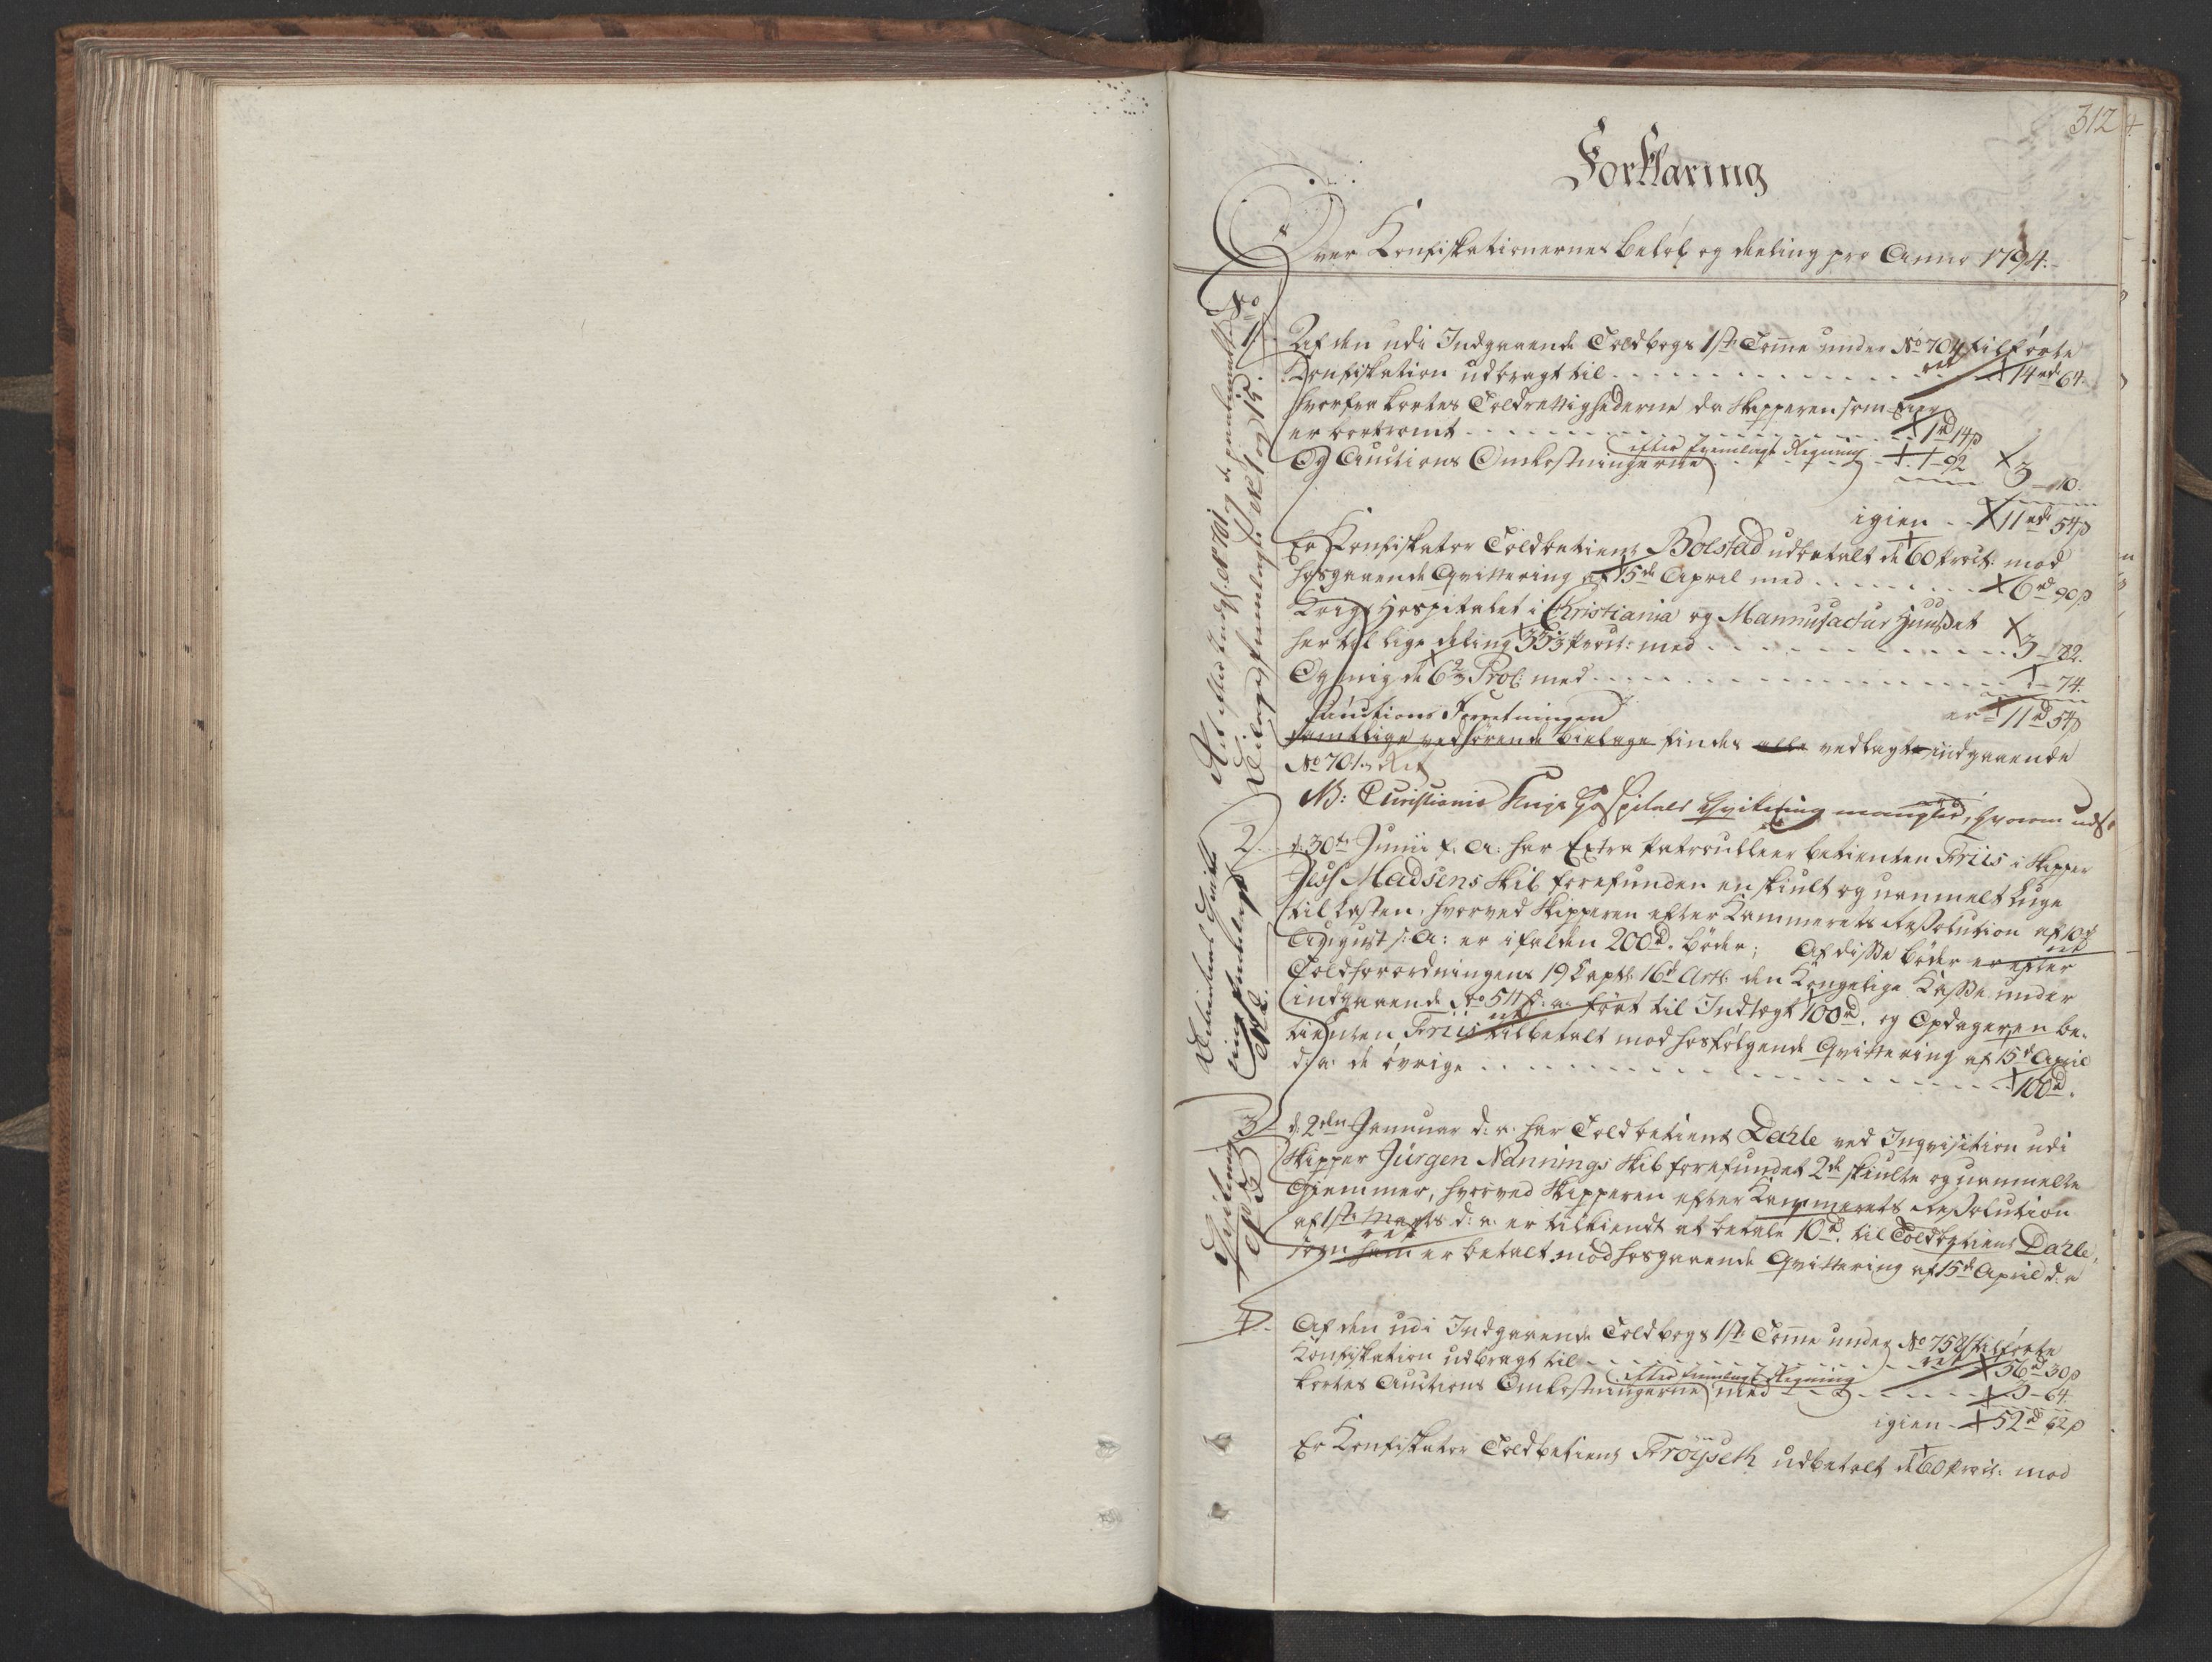 312
Forklaring
Over Konfiskationernes beløb og deeling pro Anno 1794.
No
1. Af den udi Indgaaende Toldbogs 1ste Tome under No 704 tilførte
Konfiskation udbragt til 14 rd 64.
hvorfra kortes Toldrettighederne da Skipperen som Eier
er bortrømt 1 rd 14 s
Og Auctions Omkostningerne efter fremlagt Regning 1 - 92 3 - 10.
igien 11 rd 54 s
Er Konfiskator Toldbetient Bolstad udbetalt de 60 Proct: mod
hosgaaende Qvittering af 15de April med 6 rd 90 s
Krigs Hospitalet i Christiania og Mannufactur Huuset
her til lige deling 33 1/3 Proct: med 3 - 82.
Og mig de 6 2/3 Proc: med - 74.
er 11 rd 54 s
Auctions Forretningen
samtlige vedhørende bielage findes alle vedlagt indgaaende
No 701.
NB: Christiania Krigs Hospitals Qvittering mangler, hvorom uds:
2. d: 30te Junii f. A: har Extra Patroulleer betienten Friis i Skipper
Jess Madsens Skib forefunden en skiult og uanmelt Luge
til Lasten, hvorved Skipperen efter Kammerets Resolution af 10de
August s: A: er ifalden 200 rd. bøder; Af disse bøder er efter
Toldforordningens 19 Capt: 16de Art: den Kongelige Kasse under
indgaaende No 544 d: a: ført til Indtægt 100 rd. og Opdageren be-
tienten Friis tilbetalt mod hosfølgende Qvittering af 15de April
d: a: de øvrige 100 rd.
3. d: 2den Januar d: a: har Toldbetient Dahle ved Inqvisition udi
Skipper Jürgen Nannings Skib forefundet 2de skiulte og uanmelte
Giemmer, hvorved Skipperen efter Kammerets Resolution
af 1ste Marts d: a: er tilkiendt at betale 10 rd. til Toldbetient Dahle,
som ham er betalt mod hosgaaende Qvittering af 15de April d: a
4. Af den udi Indgaaende Toldbogs 1ste Tome under No 758 tilførte
Konfiskation udbragt til 56 rd 30 s
kortes Auctions Omkostningerne efter fremlagt Regning med 3 - 64.
igien 52 rd 62 s
Er Konfiskator Toldbetient Frøyseth udbetalt de 60 Proct: mod